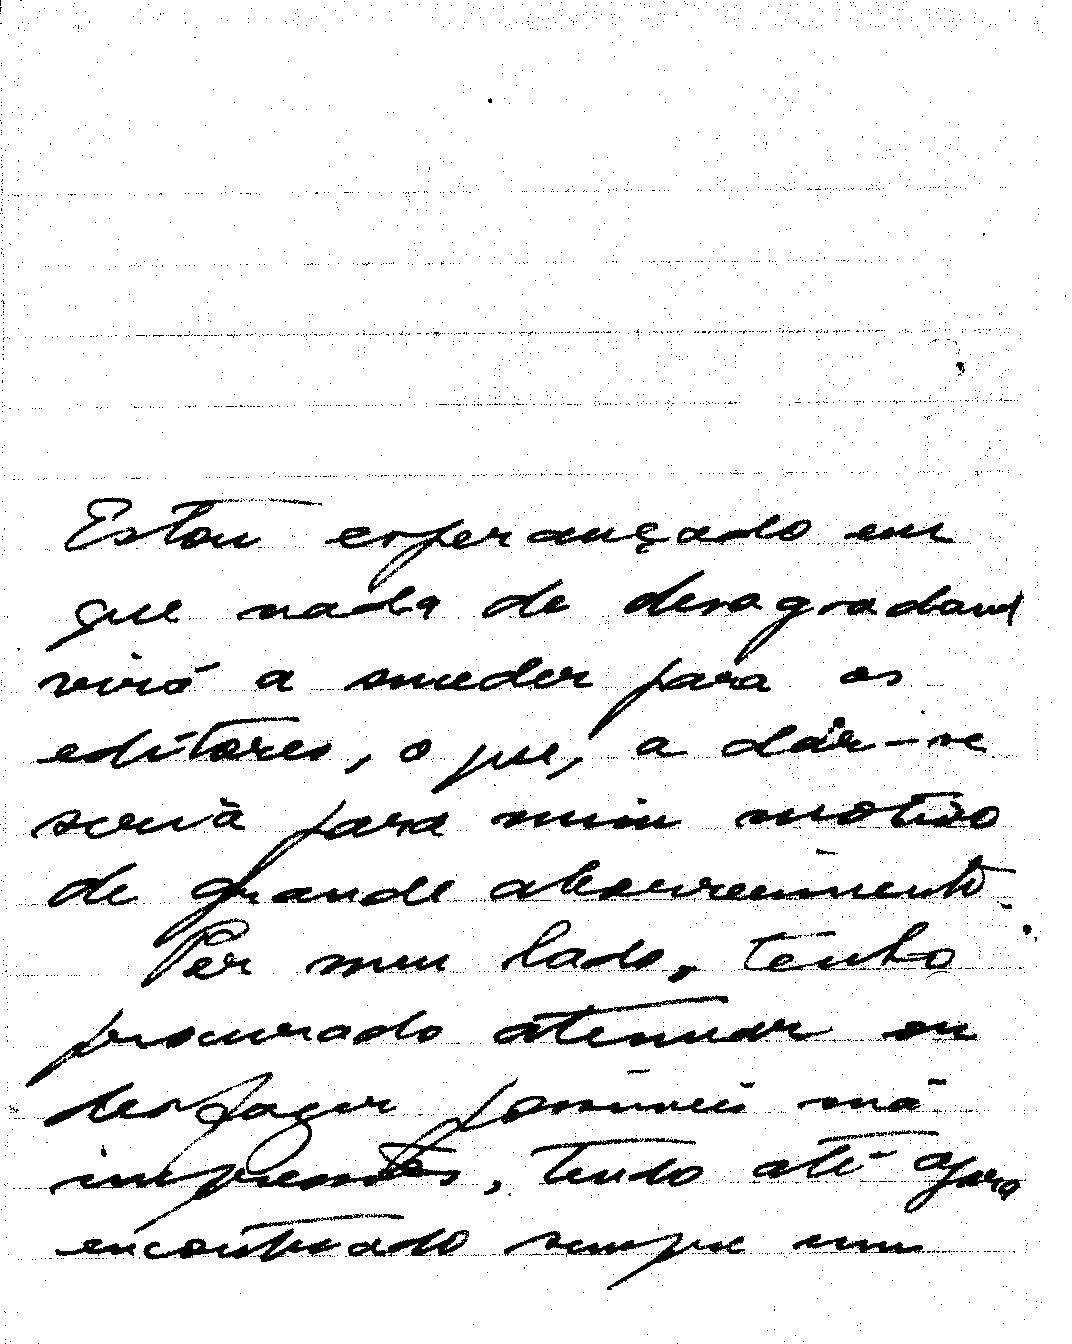 Estou esperançado em
que nada de desagradavel
virá a suceder para os
editores, o que, a dár-se
seria para mim motivo
de grande aborrecimento.
Por meu lado, tenho
procurado atenuar ou
desfazer possiveis más
impressões, tendo até agora
encontrado sempre um